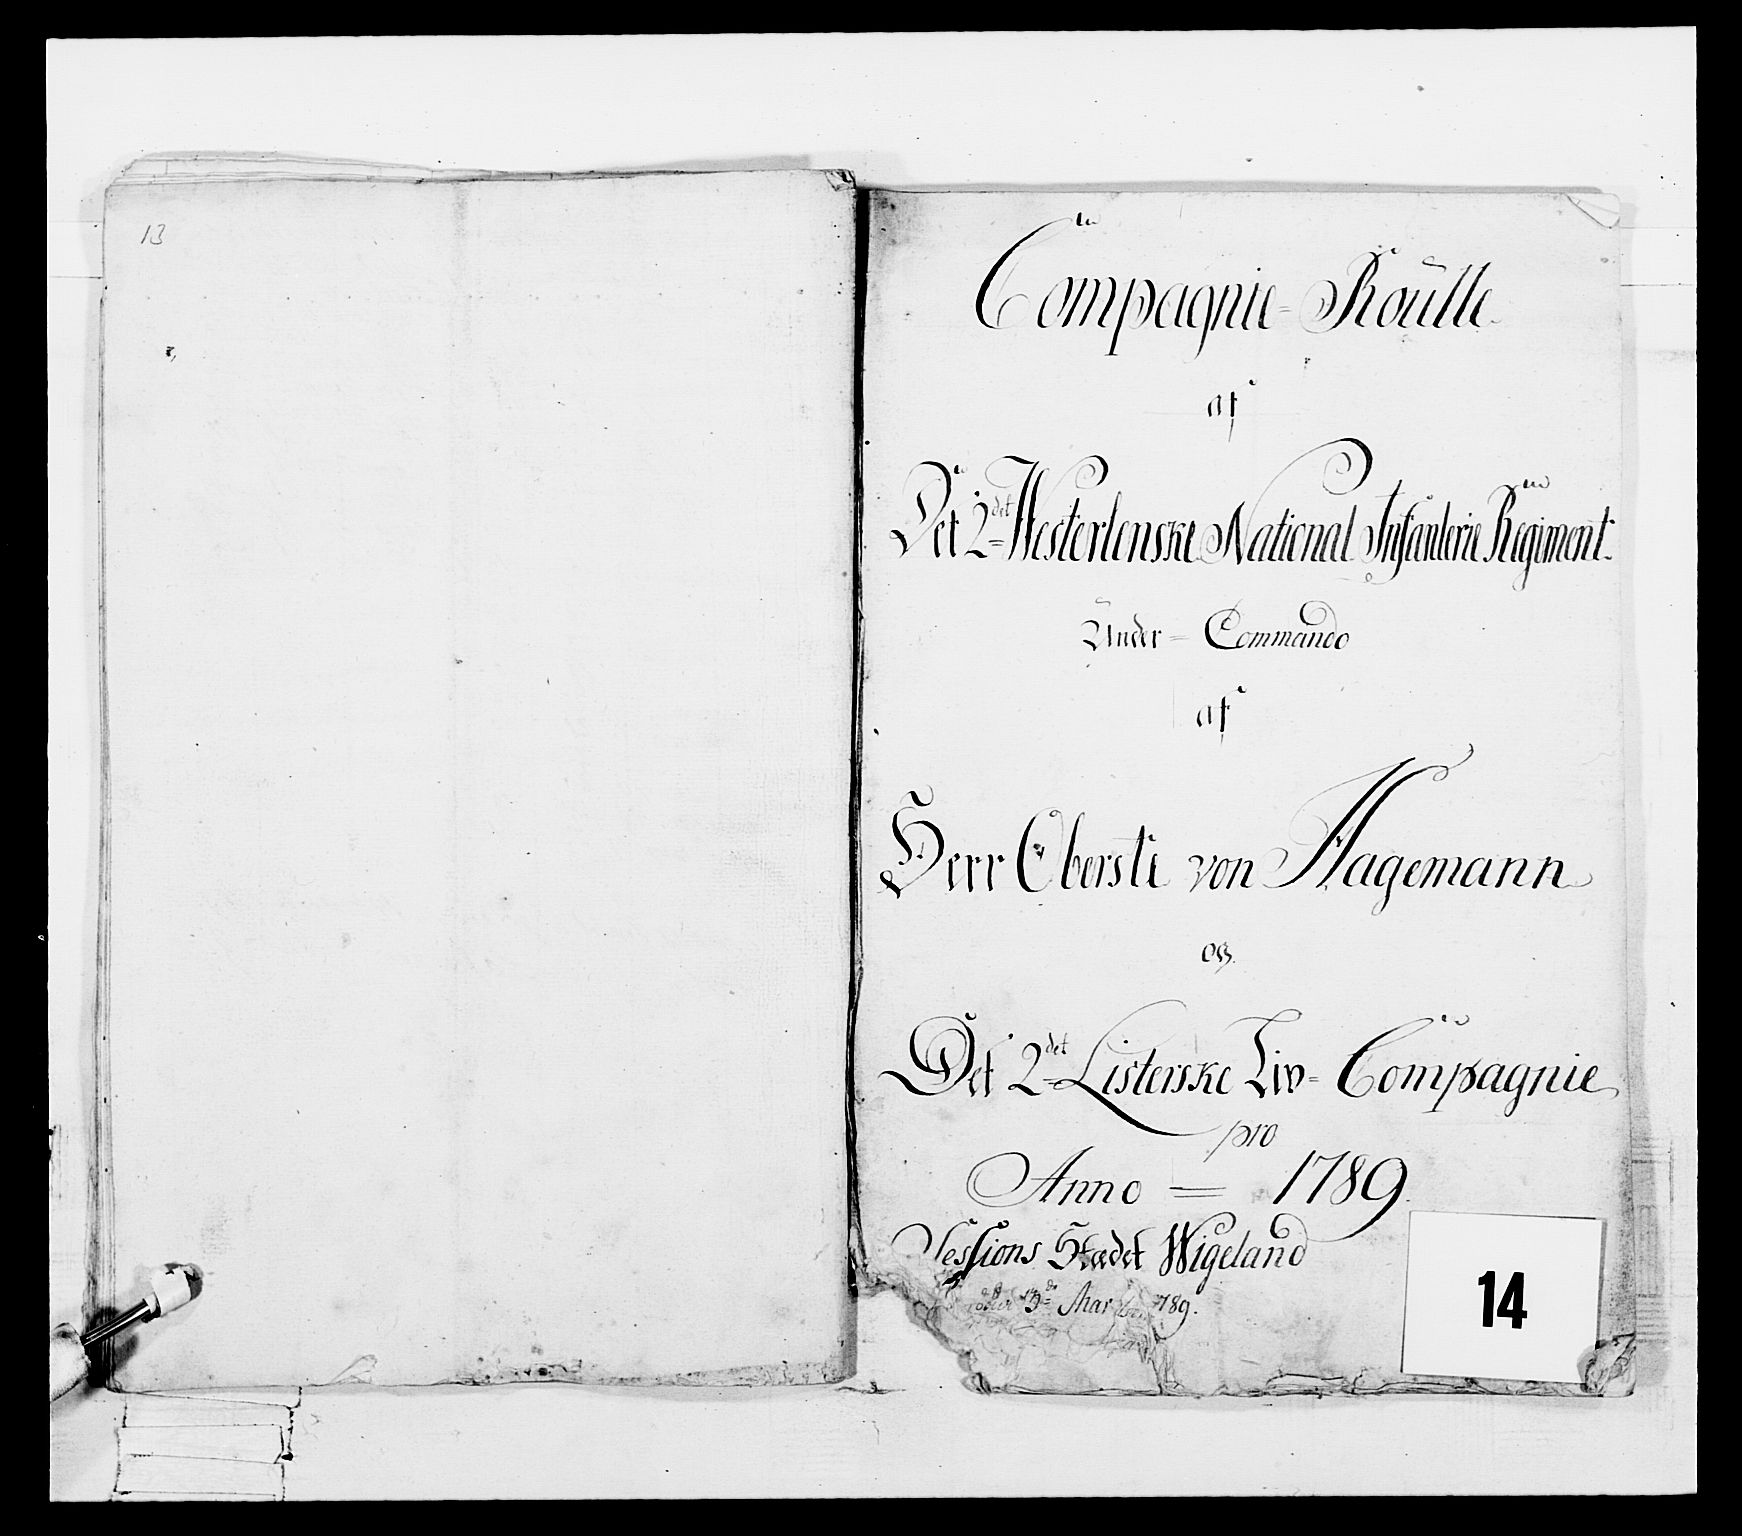 13
Compagnie-Roülle
af
Det 2det Westerlenske National Infanterie Regiment.
Ünder = Commando
af
Herr Oberste von Hagemann
og
Det 2det Listerske Liv = Compagnie
pro
Anno = 1789.
Sessions Stædet Wigeland
1789.
14